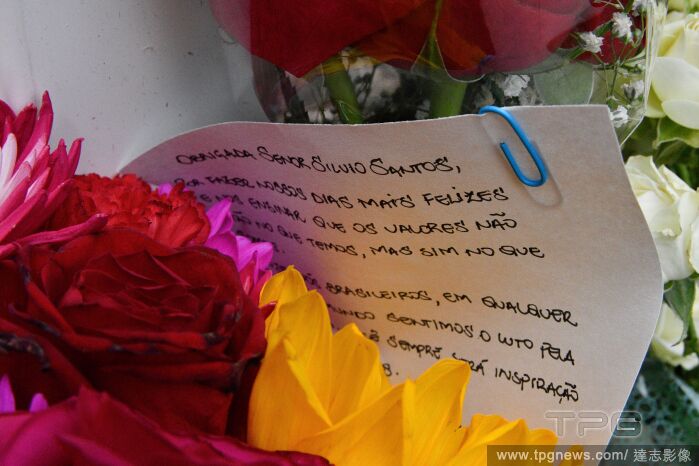 OBRIGADA SENOR SILVIO SANTOS,
POR FAZER NOSSOS DIAS MAIS FELIZES
E NOS ENSINAR QUE OS VALORES NÃO
NO QUE TEMOS, MAS SIM NO QUE
BRASILEIROS, EM QUALQUER
SENTIMOS O LUTO PELA
SEMPRE SERÁ INSPIRAÇÃO
TPG
www.tpgnews.com/ 達志影像